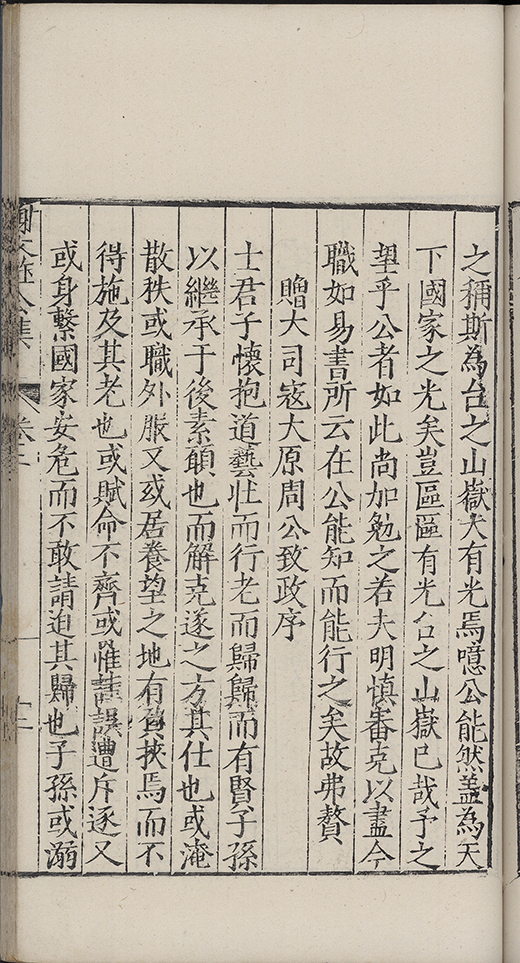 之稱斯為台之山嶽大有光焉噫公能然蓋為天
下國家之光矣豈區區有光台之山嶽已哉予之
望乎公者如此尚加勉之若夫明慎審克以盡今
職如易書所云在公能知而能行之矣故弗贅
贈大司寇大原周公致政序
士君子懷抱道藝壯而行老而歸歸而有賢子孫
以繼承于後素願也而解克遂之方其仕也或淹
散秩或職外服又或居養望之地有負挾焉而不
得施及其老也或賦命不齊或惟詿誤遭斥逐又
或身繫國家安危而不敢請迫其歸也子孫或溺
公集
卷二